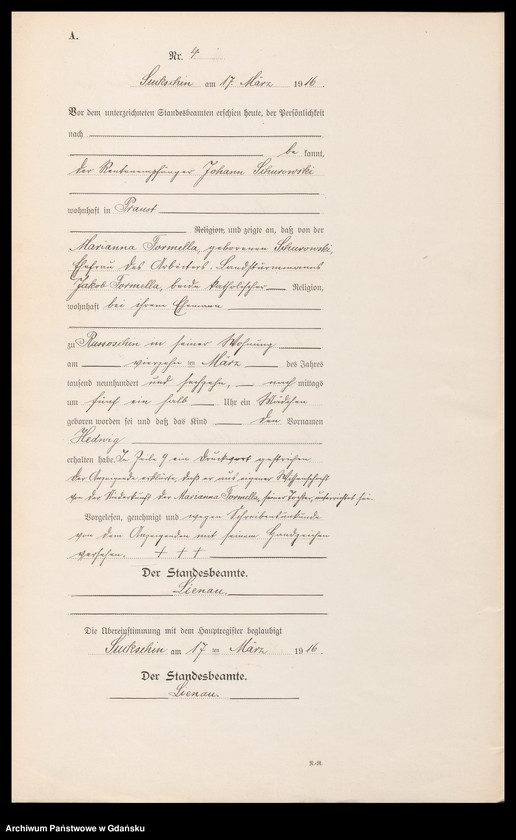 A.
Nr. 4
Suckschin am 17. März 1916.
Vor dem unterzeichneten Standesbeamten erschien heute, der Persönlichkeit
nach
be kannt,
der Rentenempfänger Johann Schurowski
wohnhaft in Praust
Religion, und zeigte an, daß von der
Marianna Formella, geborenen Schurowski,
Ehefrau des Arbeiters, Landsturmmanns
Jakob Formella, beide katholischer Religion,
wohnhaft bei ihrem Ehemann
zu Russoschin in seiner Wohnung
am vierzehn ten März des Jahres
tausend neunhundert und sechzehn, nach mittags
um fünf ein halb Uhr ein Mädchen
geboren worden sei und daß das Kind den Vornamen
Hedwig
erhalten habe. In Zeile 9 ein Druckwort gestrichen.
Der Anzeigende erklärte, daß er aus eigener Wissenschaft
von der Niederkunft der Marianna Formella, seiner Tochter, unterrichtet sei.
Vorgelesen, genehmigt und wegen Schreibensunkunde
von dem Anzeigenden mit seinem Handzeichen
versehen. + + +
Der Standesbeamte.
Lienau.
Die Übereinstimmung mit dem Hauptregister beglaubigt
Suckschin am 17 ten März 1916.
Der Standesbeamte.
Lienau.
Archiwum Państwowe w Gdańsku